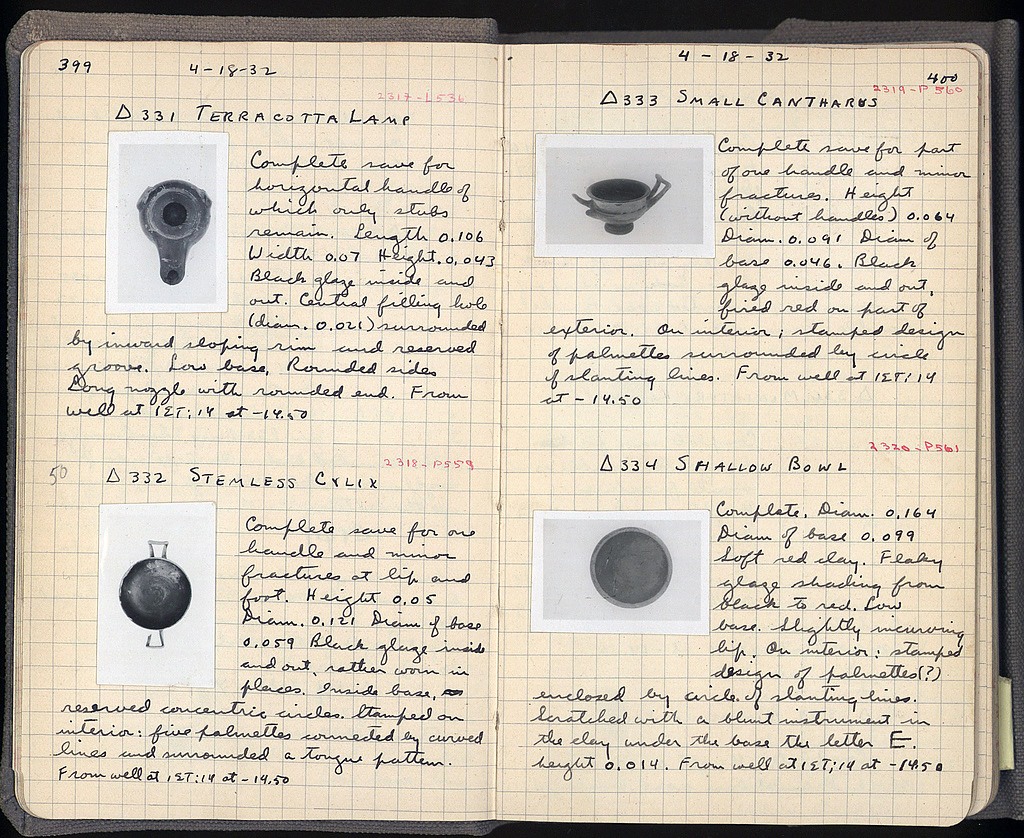 399
4-18-32
2317-L536
Δ 331 TERRACOTTA LAMP
Complete save for
horizontal handle of
which only stubs
remain. Length 0.106
Width 0.07 Height. 0.043
Black glaze inside and
out. Central filling hole
(diam. 0.021) surrounded
by inward sloping rim and reserved
groove. Low base, Rounded sides
Long nozzle with rounded end. From
well at 1ΣΤ:14 at -14.50
50
2318-P559
Δ 332 STEMLESS CYLIX
Complete save for one
handle and minor
fractures at lip and
foot. Height 0.05
Diam. 0.121 Diam of base
0.059 Black glaze inside
and out, rather worn in
places. Inside base,
reserved concentric circles. Stamped on
interior: five palmettes connected by curved
lines and surrounded a tongue pattern.
From well at 1ΣΤ:14 at -14.50
4-18-32
400
2319-P560
Δ 333 SMALL CANTHARUS
Complete save for part
of one handle and minor
fractures. Height
(without handles) 0.064
Diam. 0.091 Diam of
base 0.046. Black
glaze inside and out,
fired red on part of
exterior. On interior; stamped design
of palmettes surrounded by circle
of slanting lines. From well at 1ΣΤ:14
at -14.50
2320-P561
Δ 334 SHALLOW BOWL
Complete. Diam. 0.164
Diam of base 0.099
Soft red clay. Flaky
glaze shading from
black to red. Low
base. Slightly incurving
lip. On interior: stamped
design of palmettes(?)
enclosed by circle of slanting lines.
Scratched with a blunt instrument in
the clay under the base the letter E.
height 0.014. From well at 1ΣΤ:14 at -14.50